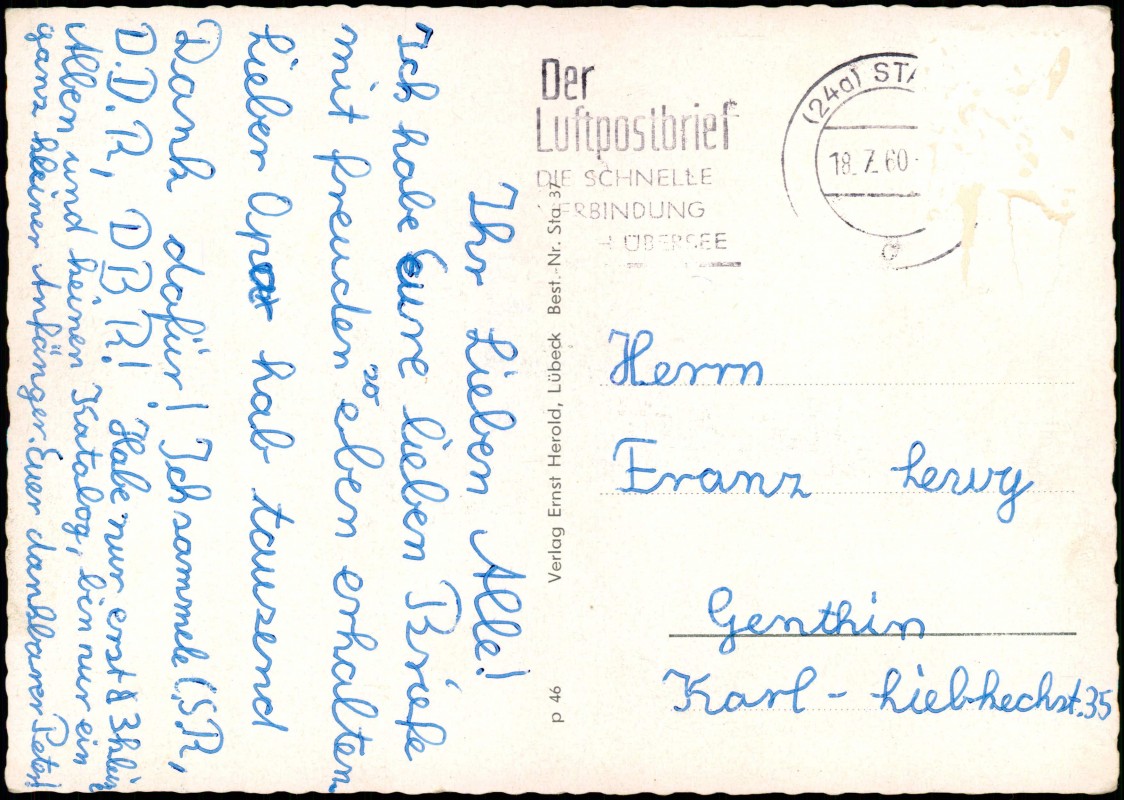 Ihr Lieben Alle!
Ich habe Eure lieben Briefe
mit freuden so eben erhalten
Lieber Opa hab tauzend
Dank dafür! Ich sammele ČSR,
D.D.R, DBR! Habe nur erst 3 klein
Alben und keinen Katalog, bin nur ein
ganz kleiner Anfänger. Euer dankbarer Peter!
Verlag Ernst Herold, Lübeck Best.-Nr. Sta. 37
p 46
Der
Luftpostbrief
DIE SCHNELLE
VERBINDUNG
ÜBERSEE
(24a) STA
18.7.60
d
Herrn
Franz Lewy
Genthin
Karl - Liebkechst. 35